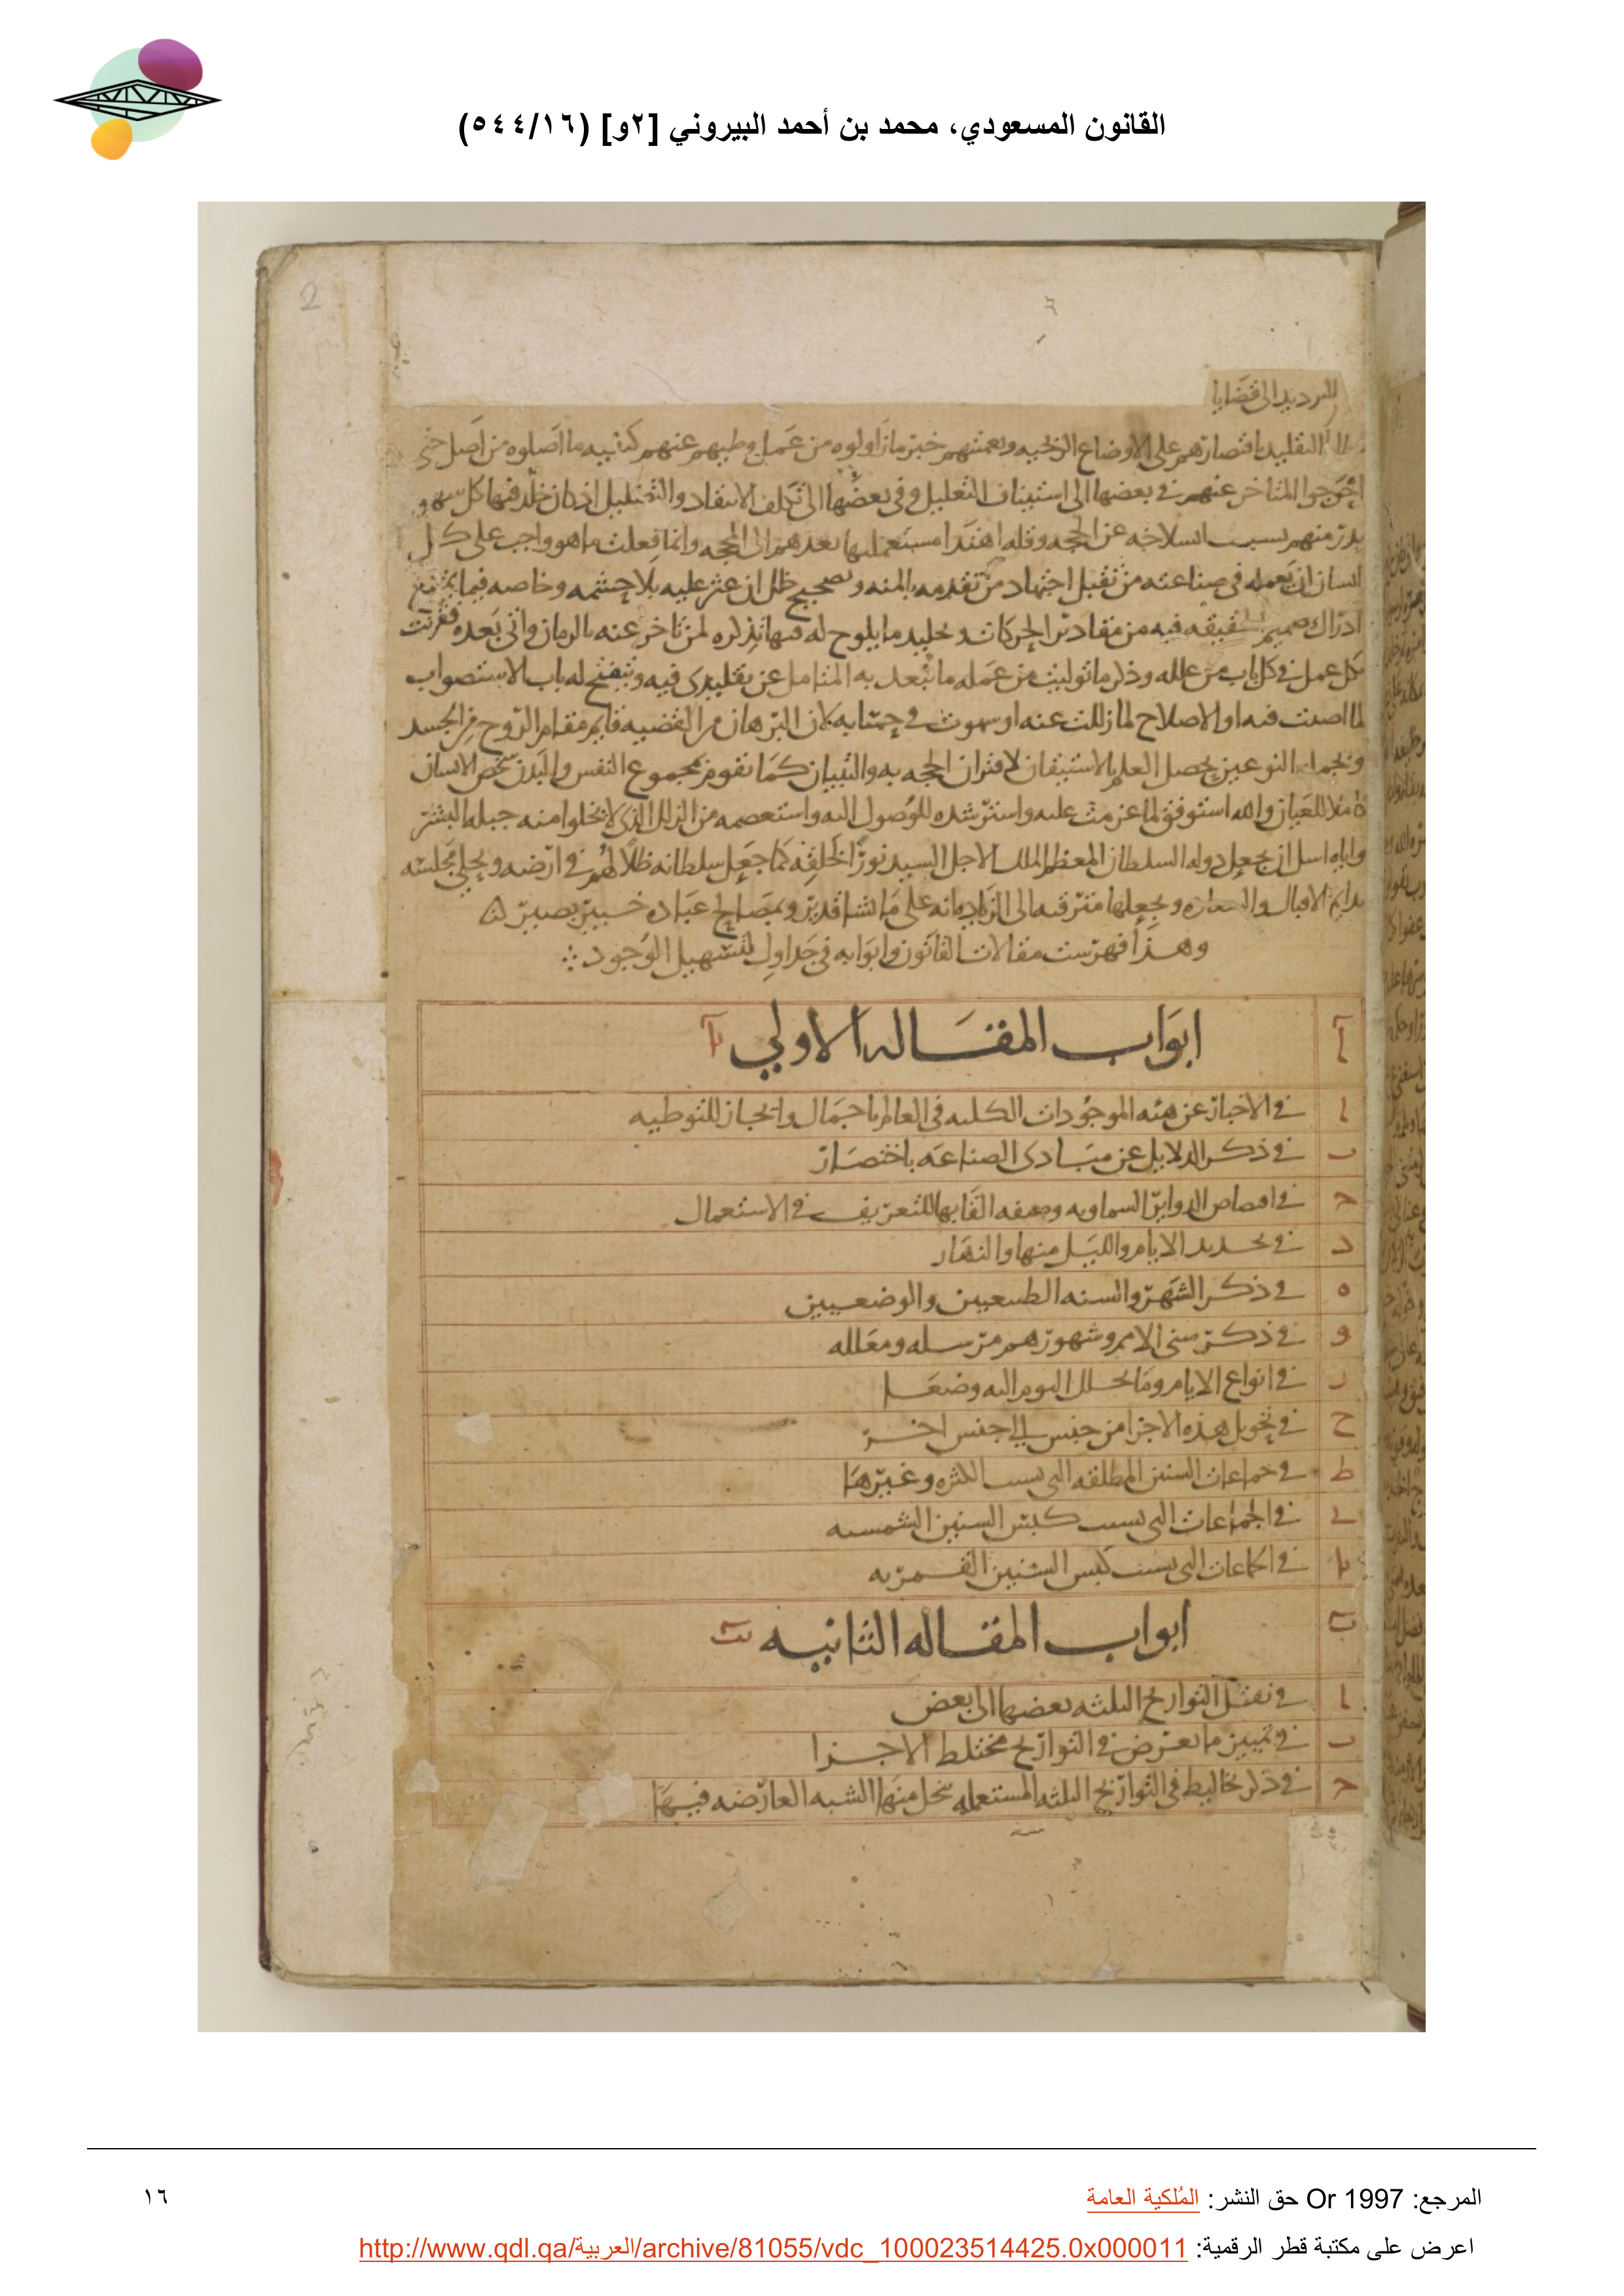 القانون المسعودي، محمد بن أحمد البيروني [٢و] (٥٤٤/١٦)
2
للترديد الى قضايا
التقليد باقتصارهم على الاوضاع الزيجيه وتعميتهم خبر ما زاولوه من عمل وطيهم عنهم كيفيه ما اصلوه من اصل حتى
احوجوا المتاخر عنهم في بعضها الى استيناف التعليل وفي بعضها الى تكلف الانتقاد والتضليل اذ كان خلد فيها كل سهو
بدر منهم بسبب انسلاخه عن الحجه وقله اهتدا مستعمليها بعدهم الى المحجه وانما فعلت ما هو واجب على كل
انسان ان يعمله في صناعته من تقبل اجتهاد من تقدمه بالمنه وتصحيح خلل ان عثر عليه بلا حشمه وخاصه فيما يمتنع
ادراك صميم الحقيقه فيه من مقادير الحركات وتخليد ما يلوح له فيها تذكره لمن تاخر عنه بالزمان واتى بعده فقرنت
بكل عمل في كل باب من علله وذكر ما توليت من عمله ما تبعد به المتامل عن تقليدى فيه وينفتح له باب الاستصواب
لما اصبت فيه او الاصلاح لما زللت عنه او سهوت في حسابه لان البرهان من القضيه قايم مقام الروح من الجسد
وبجمله النوعين يحصل العلم بالاستيقان لاقتران الحجه به والتبيان كما تقوم مجموع النفس والبدن شخص الانسان
كاملا للعيان والله استوفق لما عزمت عليه واسترشده للوصول اليه واستعصمه من الزلل الذى لا تخلوا منه جبله البشر
واياه اسل ان يجعل دوله السلطان المعظم الملك الاجل السيد نورا لخلقه كما جعل سلطانه ظلا لهم في ارضه ويحلي مجلسه
بدايم الاقبال والسعاده ويجعلها مترقيه الى الزياده انه على ما يشا قدير وبمصالح عباده خبير بصير
وهذا فهرست مقالات القانون وابوابه في جداول لتسهيل الوجود
آ ابواب المقاله الاولي يآ
ا في الاخبار عن هيه الموجودات الكليه في العالم باجمال وايجاز للتوطيه
ب في ذكر الدلايل عن مبادى الصناعه باختصار
ح في اقتصاص الدواير السماويه وصفه القابها للتعريف في الاستعمال
د في تحديد الايام والليل منها والنهار
ه في ذكر الشهر والسنه الطبيعيين والوضعيين
و في ذكر سنى الامم وشهورهم مرسله ومعلله
ز في انواع الايام وما يحلل اليوم اليه وضعا
ح في تحويل هذه الاجزا من جنس الي جنس اخر
ط في جماعات السنين المطلقه التى بسبب الكثره وغيرها
ي في الجماعات التى بسبب كبس السنين الشمسيه
يا في الجماعات التى بسبب كبس السنين القمريه
ب ابواب المقاله الثانيه يب
ا في نقل التواريخ الثلثه بعضها الى بعض
ب في تمييز ما يعرض في التواريخ مختلط الاجزا
ح في ذكر تخاليط في التواريخ الثلثه المستعمله ينحل منها الشبه العارضه فيها
المرجع: Or 1997 حق النشر: المُلكية العامة
١٦
اعرض على مكتبة قطر الرقمية: http://www.qdl.qa/العربية/archive/81055/vdc_100023514425.0x000011